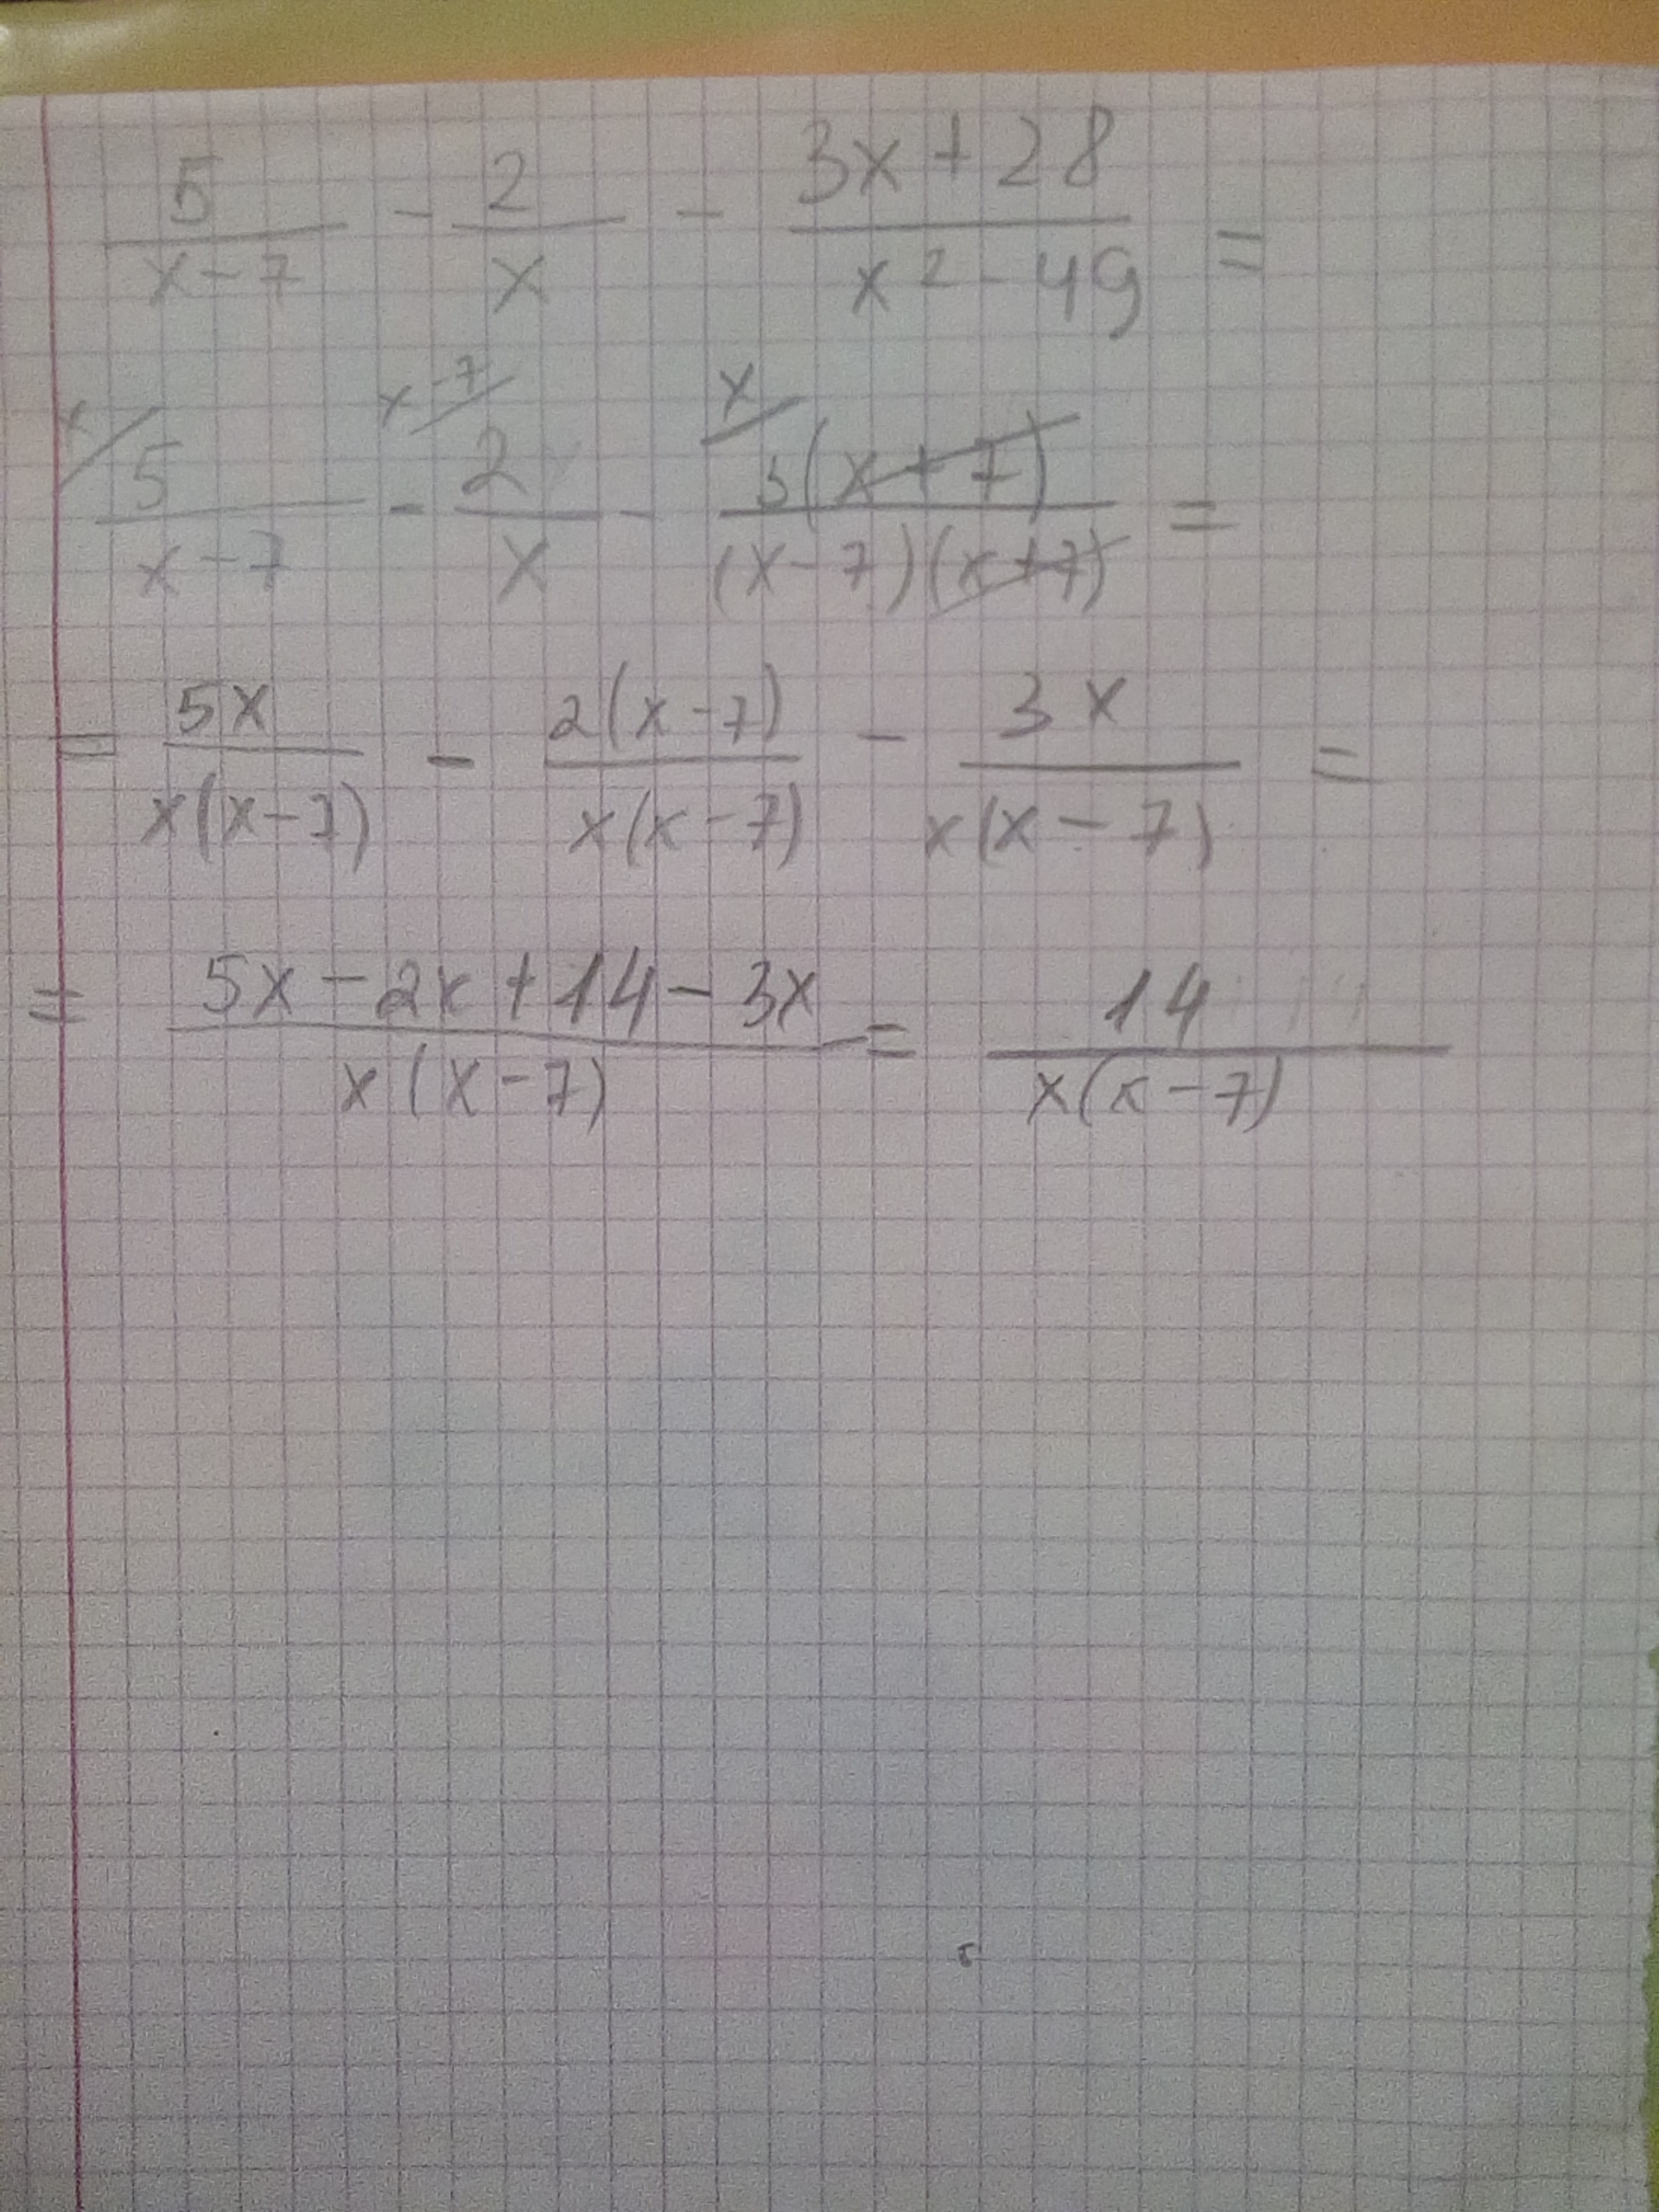 5/(x-7) - 2/x - (3x+28)/(x²-49) =
x/ 5/(x-7) - x-7/ 2/x - x/ 3(x+7)/((x-7)(x+7)) =
= 5x/(x(x-7)) - 2(x-7)/(x(x-7)) - 3x/(x(x-7)) =
= (5x-2x+14-3x)/(x(x-7)) = 14/(x(x-7))